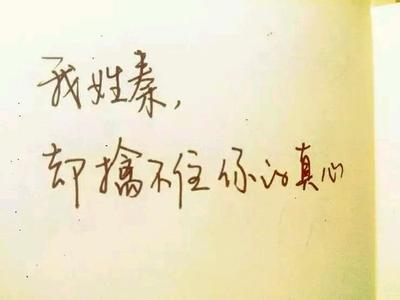 我姓秦,
却擒不住你的真心